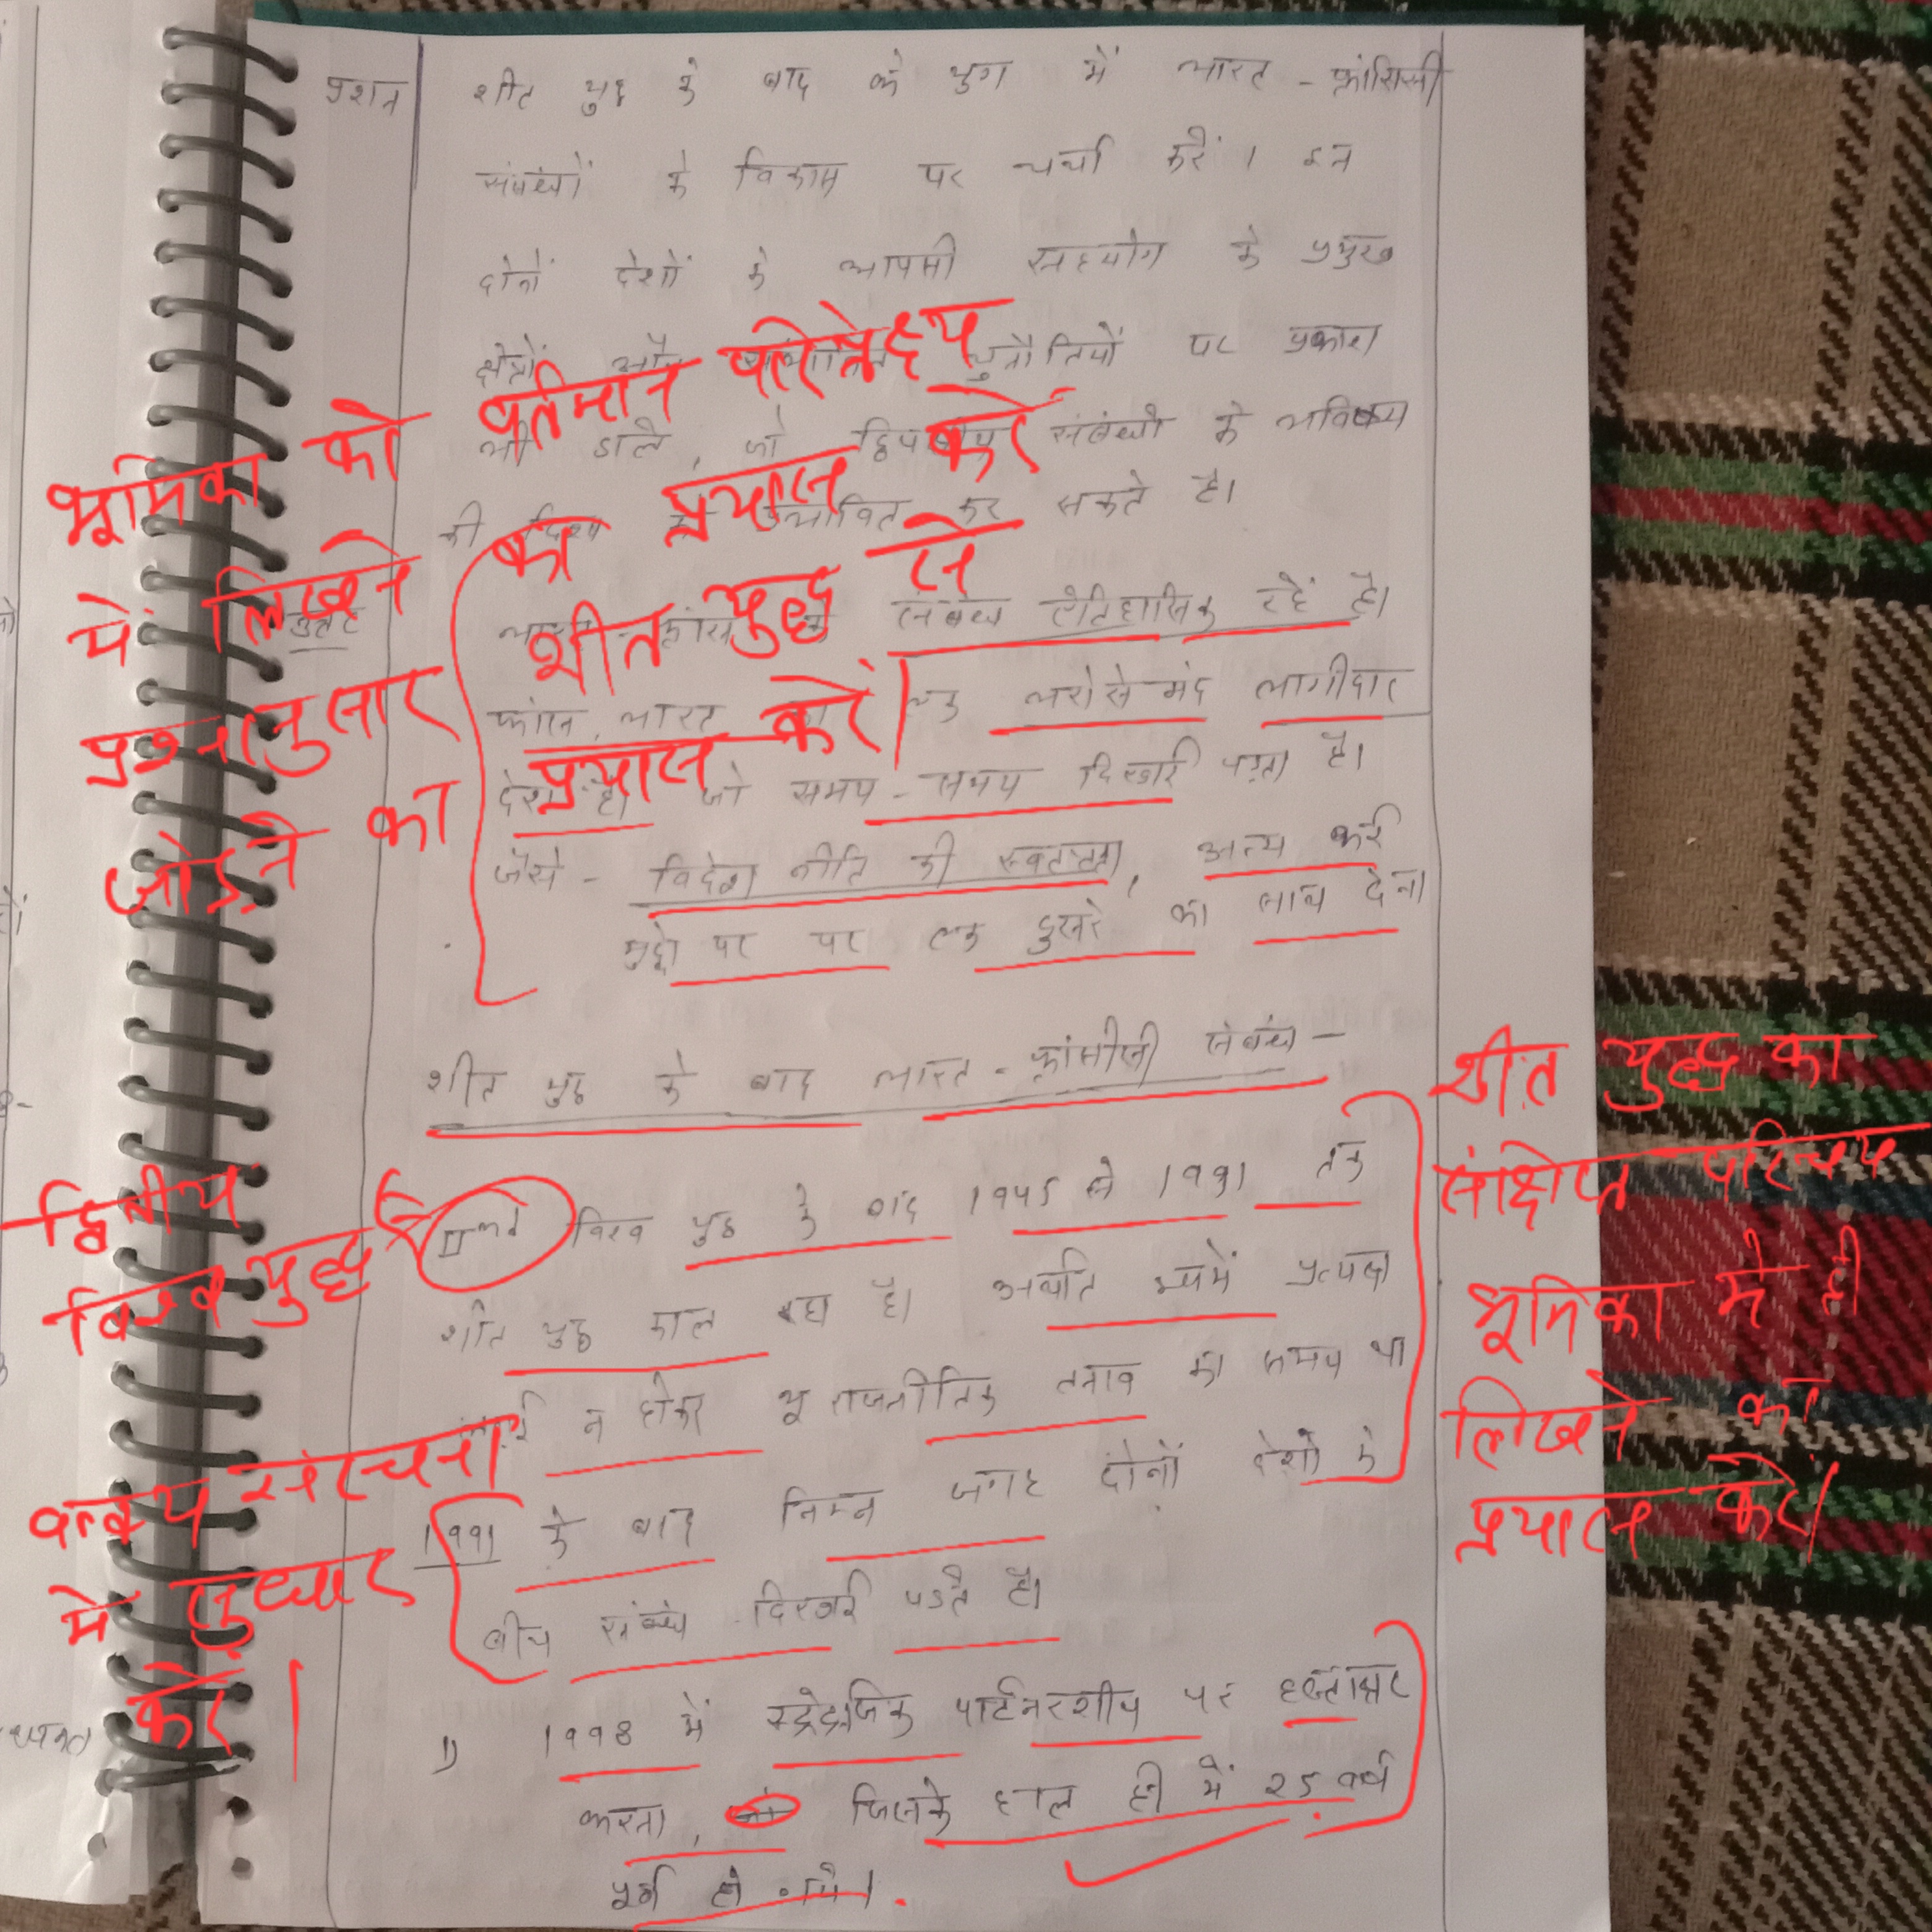 प्रशन शीत युद्ध के बाद के युग में भारत - फ्रांसिसी
संबंधों के विकास पर चर्चा करें। इन
दोनों देशों के आपसी सहयोग के प्रमुख
क्षेत्रों और चुनौतियों पर प्रकाश
भी डाले, जो द्विपक्षीय संबंधो के भविष्य
की दिशा को प्रभावित कर सकते है।
भूमिका को वर्तमान परिप्रेक्ष्य
में लिखने का प्रयास करें
प्रश्नानुसार शीत युद्ध से
जोड़ने का प्रयास करें।
उत्तर भारत - फ्रांस के संबंध ऐतिहासिक रहें है।
फ्रांस, भारत का एक भरोसेमंद भागीदार
देश है। जो समय - समय दिखाई पड़ता है।
जैसे - विदेश नीति की स्वतंत्रता, अन्य कई
मुद्दो पर पर एक दुसरे का साथ देना
शीत युद्ध के बाद भारत - फ्रांसीसी संबंध -
शीत युद्ध का
संक्षिप्त परिचय
भूमिका में ही
लिखने का
प्रयास करें।
द्वितीय
विश्व युद्ध
विश्व युद्ध के बाद 1945 से 1991 तक
शीत युद्ध काल रहा है। अर्थात इसमें प्रत्यक्ष
न होकर भू राजनीतिक तनाव का समय था
वाक्य संरचना
में सुधार
करें।
1991 के बाद निम्न जगह दोनों देशो के
बीच संबंध दिखाई पडते है।
1) 1998 में स्ट्रेट्रेजिक पार्टनरशीप पर हस्ताक्षर
करना, जिसके हाल ही में 25 वर्ष
पूर्ण हो गये।